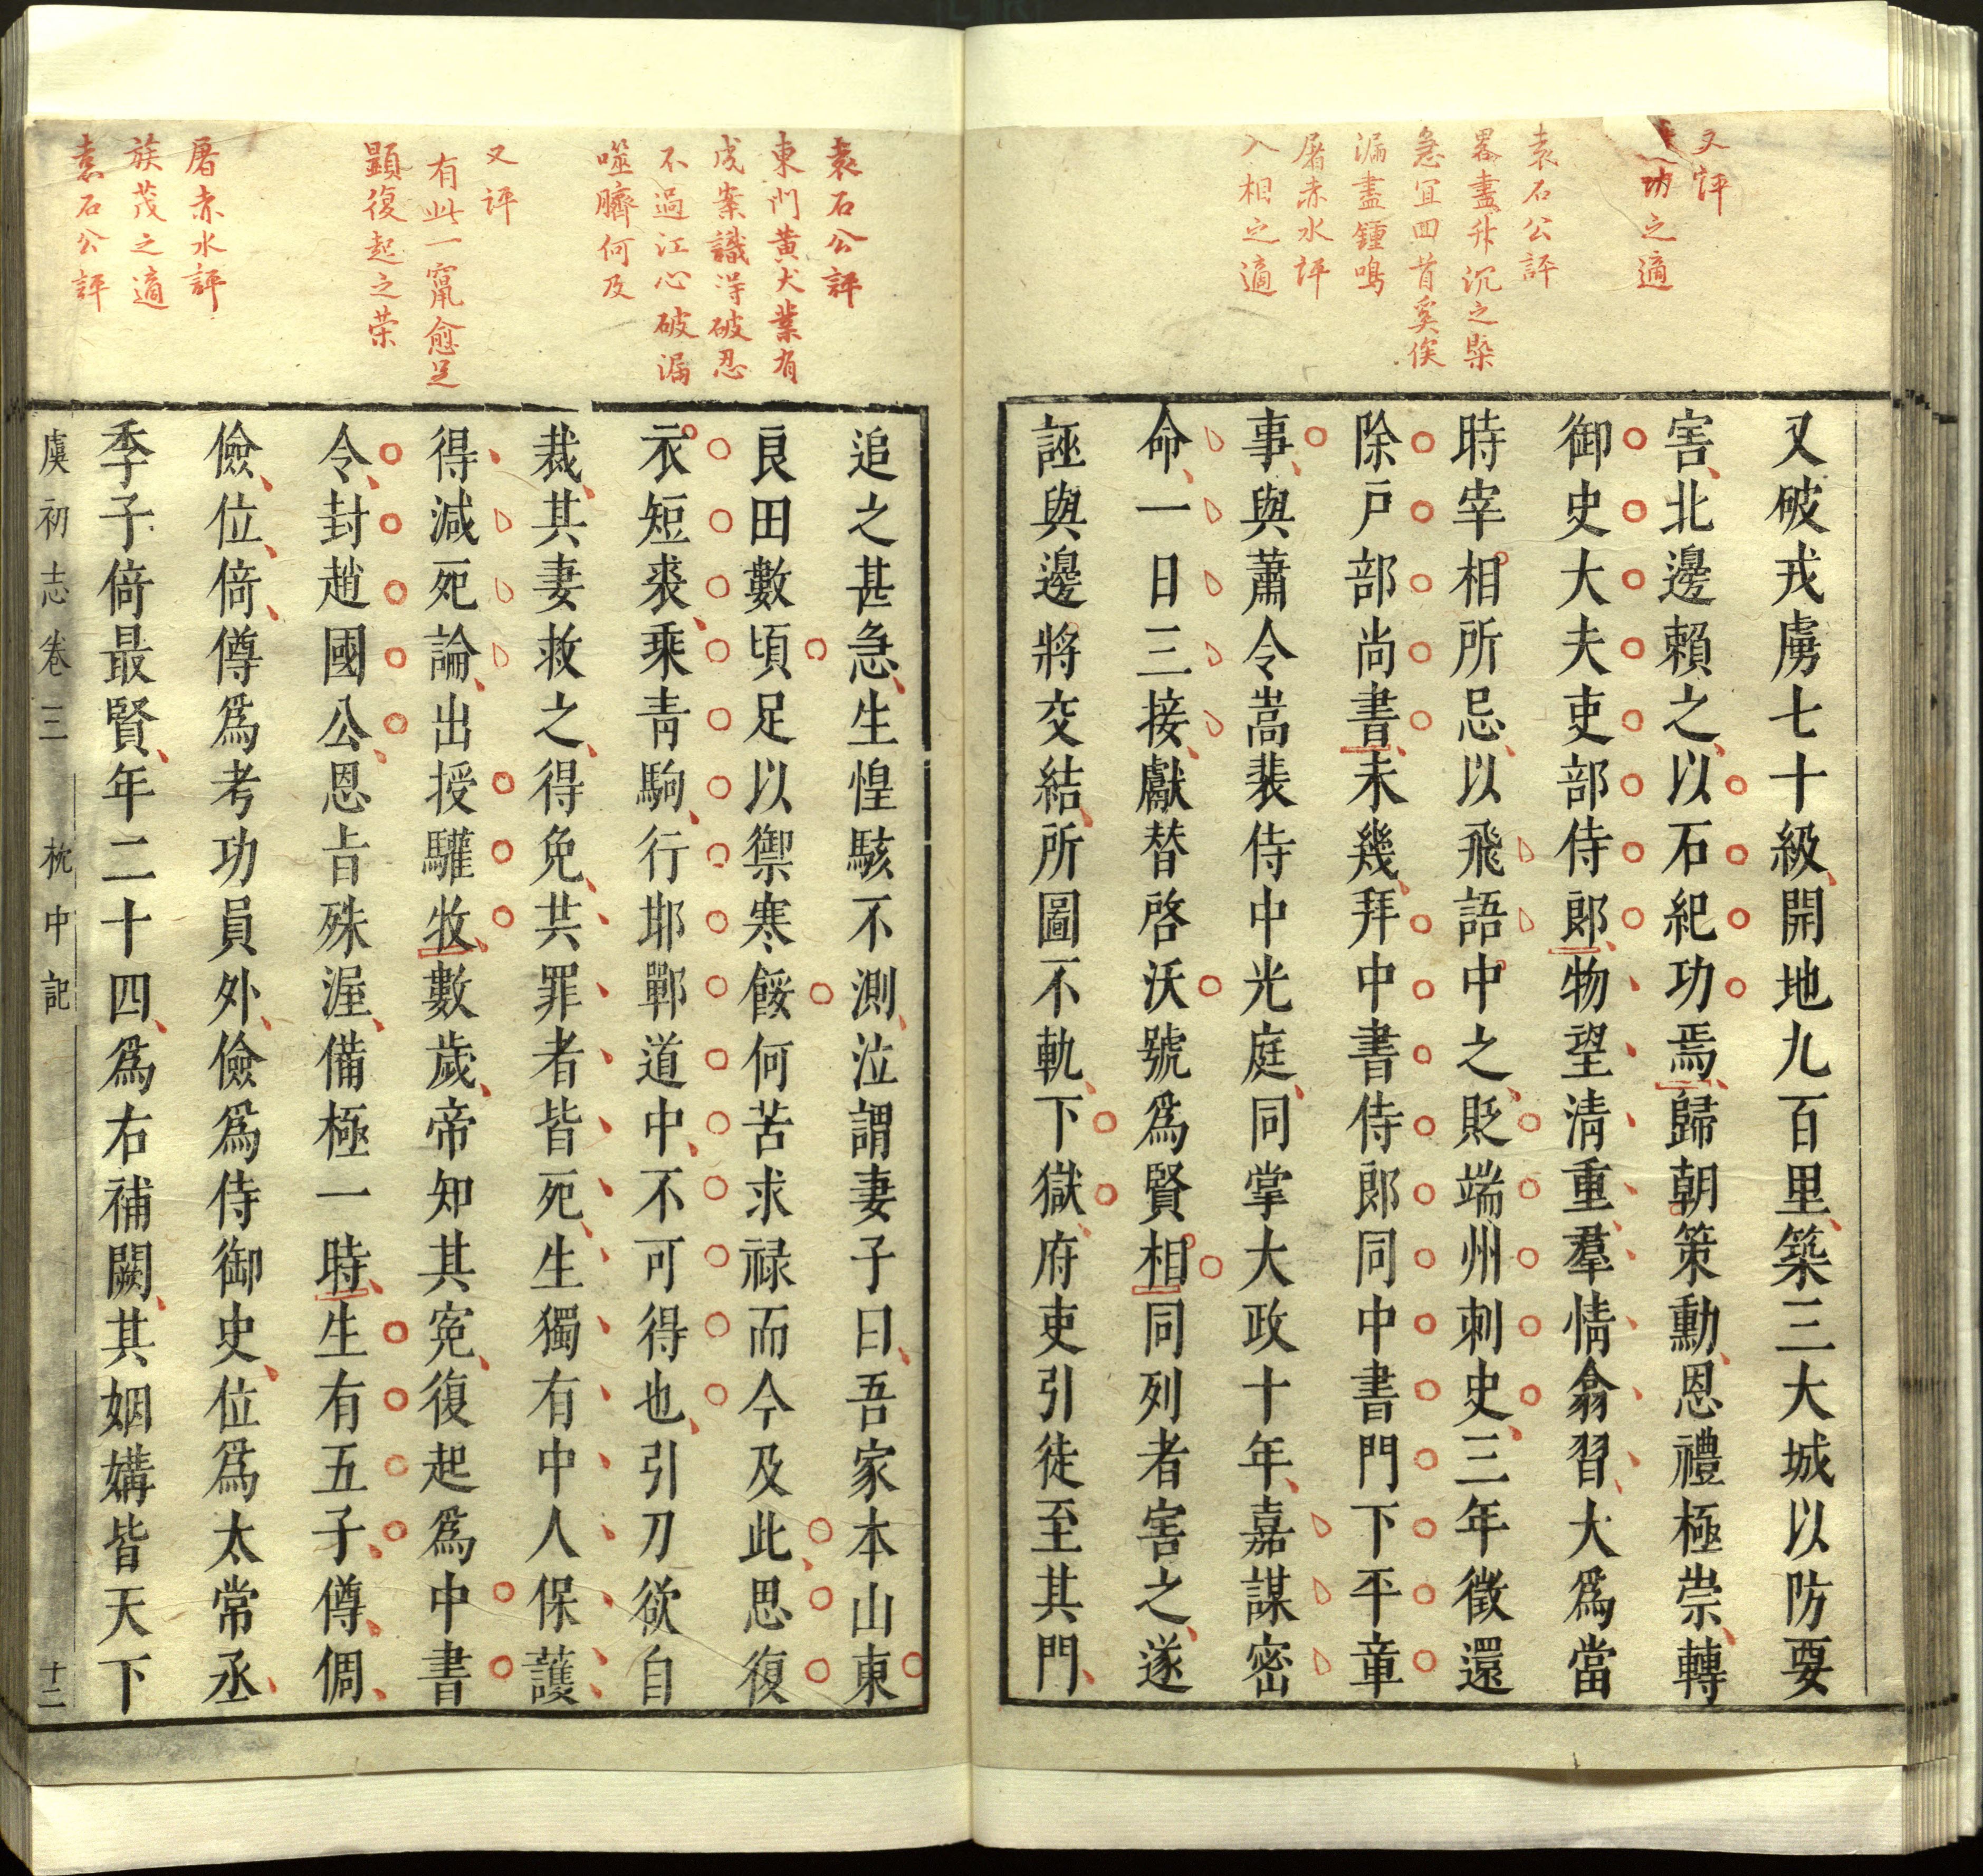 又評
功之適
袁石公評
畧盡升沉之槩
急宜回首奚俟
漏盡鍾鳴
屠赤水評
入相之適
又破戎虜七十級開地九百里築三大城以防要
害北邊賴之以石紀功焉歸朝策勳恩禮極崇轉
御史大夫吏部侍郎物望清重羣情翕習大為當
時宰相所忌以飛語中之貶端州刺史三年徵還
除戶部尚書未幾拜中書侍郎同中書門下平章
事與蕭令嵩裴侍中光庭同掌大政十年嘉謀密
命一日三接獻替啓沃號爲賢相同列者害之遂
誣與邊將交結所圖不軌下獄府吏引徒至其門
袁石公評
東門黃犬業有
成案識得破忍
不過江心破漏
噬臍何及
又評
有此一竄愈足
顯復起之荣
屠赤水評
族茂之適
袁石公評
追之甚急生惶駭不測泣謂妻子曰吾家本山東
良田數頃足以禦寒餒何苦求禄而今及此思復
衣短裘乘青駒行邯鄲道中不可得也引刀欲自
裁其妻救之得免共罪者皆死生獨有中人保護
得減死論出授驩牧數歲帝知其寃復起爲中書
令封趙國公恩旨殊渥備極一時生有五子僔倜
儉位倚僔爲考功員外儉爲侍御史位爲太常丞
季子倚最賢年二十四爲右補闕其姻媾皆天下
虞初志卷三 枕中記 十二